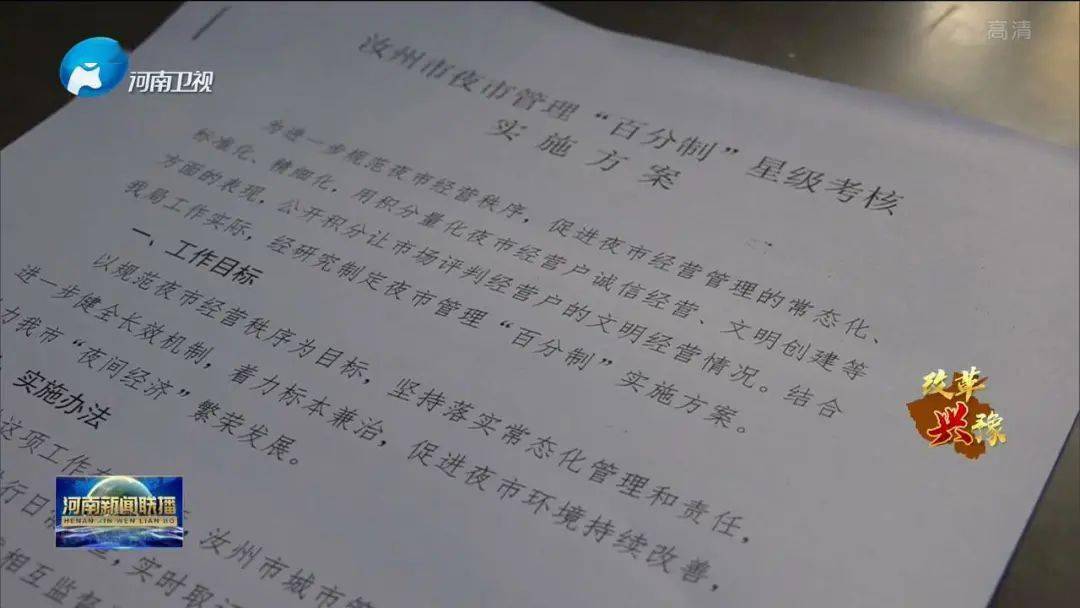 高清
河南卫视
汝州市夜市管理“百分制”星级考核
实施方案
为进一步规范夜市经营秩序，促进夜市经营管理的常态化、
标准化、精细化，用积分量化夜市经营户诚信经营、文明创建等
方面的表现，公开积分让市场评判经营户的文明经营情况。结合
我局工作实际，经研究制定夜市管理“百分制”实施方案。
一、工作目标
以规范夜市经营秩序为目标，坚持落实常态化管理和责任，
进一步健全长效机制，着力标本兼治，促进夜市环境持续改善，
力我市“夜间经济”繁荣发展。
实施办法
这项工作
汝州市城市管
行日
实时取
相互监督
改革
兴豫
河南新闻联播
HENAN XIN WEN LIAN BO